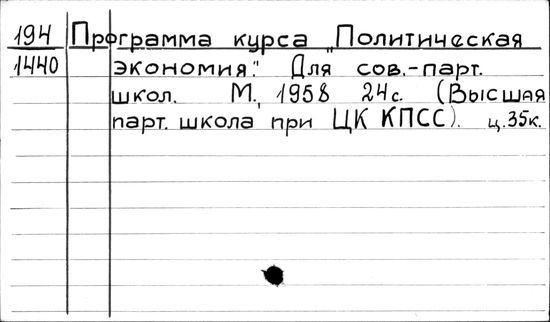 194 Программа курса „Политическая
1440 экономия." Для сов.-парт.
школ. М., 1958 24 с. (Высшая
парт. школа при ЦК КПСС). ц.35к.